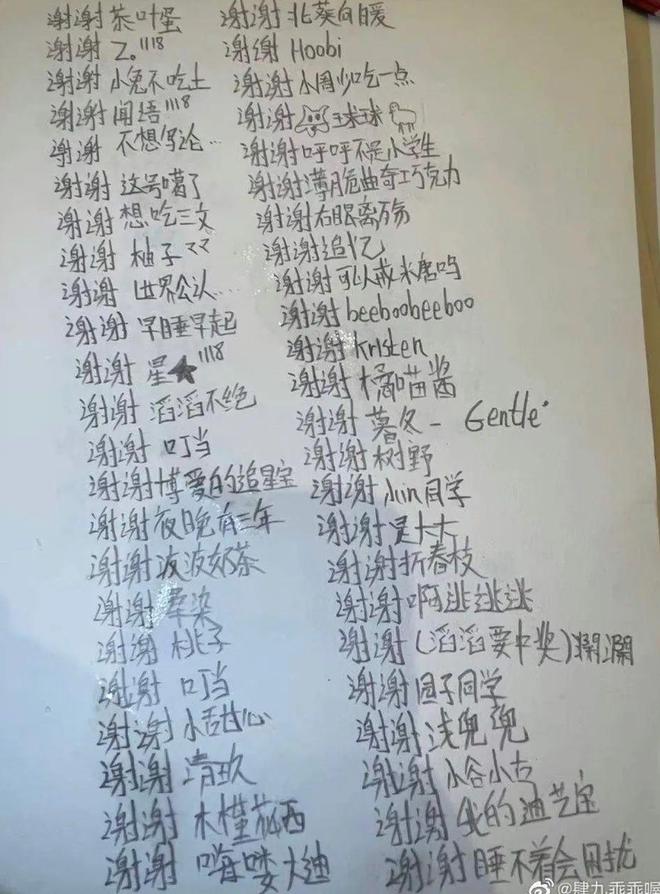 谢谢 茶叶蛋
谢谢 Z。1118
谢谢 小兔不吃土
谢谢 闻语1118
谢谢 不想写论...
谢谢 这号噶了
谢谢 想吃三文
谢谢 柚子ママ
谢谢 世界公认...
谢谢 早睡早起
谢谢 星★1118
谢谢 滔滔不绝
谢谢 叮当
谢谢 博爱的追星宝
谢谢 夜晚有三年
谢谢 波波奶茶
谢谢 染
谢谢 桃子
谢谢 叮当
谢谢 小甜心
谢谢 清玖
谢谢 木槿花西
谢谢 嗨喽大迪
谢谢 北葵向暖
谢谢 Hoobi
谢谢 小周少吃一点
谢谢 球球
谢谢 呼呼不是小学生
谢谢 薄脆曲奇巧克力
谢谢 右眼离殇
谢谢 追忆
谢谢 可以戒米唐吗
谢谢 beeboobeeboo
谢谢 Kristen
谢谢 橘喵酱
谢谢 暮冬- Gentle
谢谢 树野
谢谢 同学
谢谢 是大大
谢谢 折春枝
谢谢 啊逃逃逃
谢谢 (滔滔要中奖)
谢谢 团子同学
谢谢 浅兜兜
谢谢 小谷小古
谢谢 我的迪艺宝
谢谢 睡不着会困扰
@肆九乖乖啊